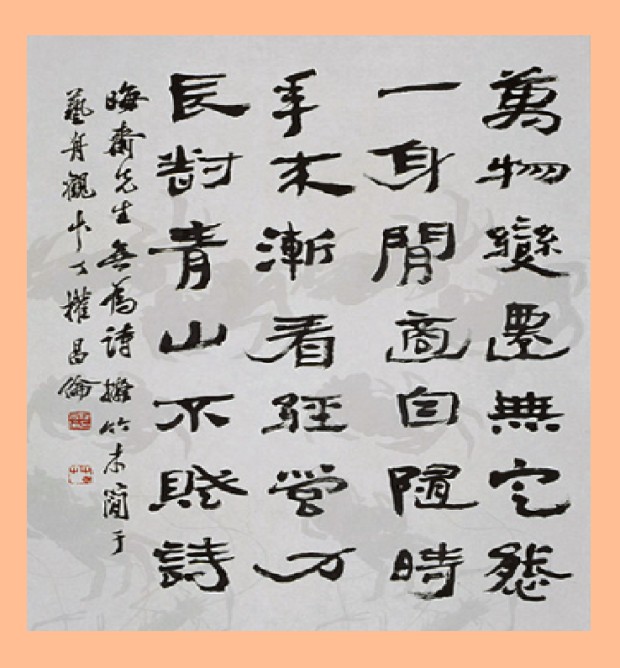 萬物變遷無定態
一身閒適自隨時
年来漸省經營力
長對青山不賦詩
晦齋先生無爲詩擬竹木簡于
藝舟觀 權昌倫